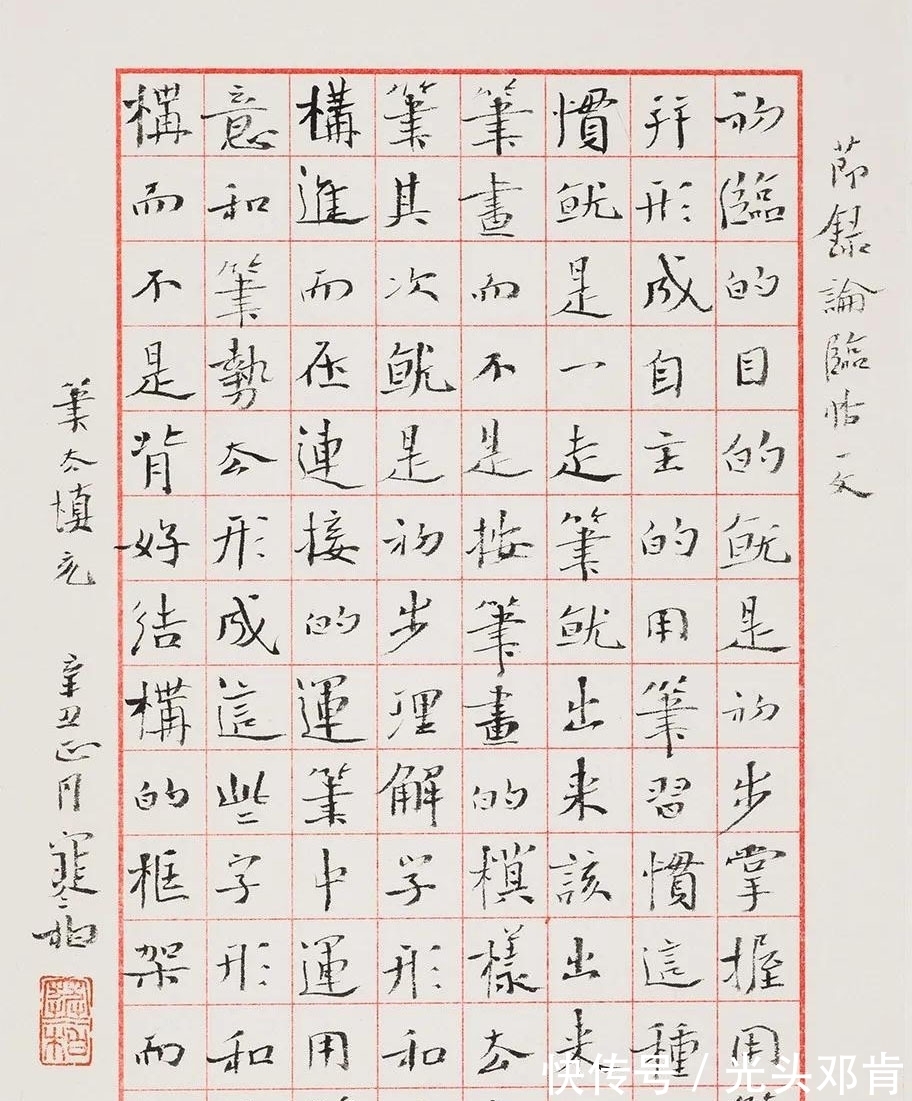 節録論臨帖一文
初臨的目的就是初步掌握用
并形成自主的用筆習慣這種
慣就是一走筆就出来該出来
筆畫而不是按筆畫的模樣去
筆其次就是初步理解字形和
構進而在連接的運筆中運用
意和筆勢去形成這些字形和
構而不是背好結構的框架而
筆太慎 辛丑正月
快传号 / 光头邓肯